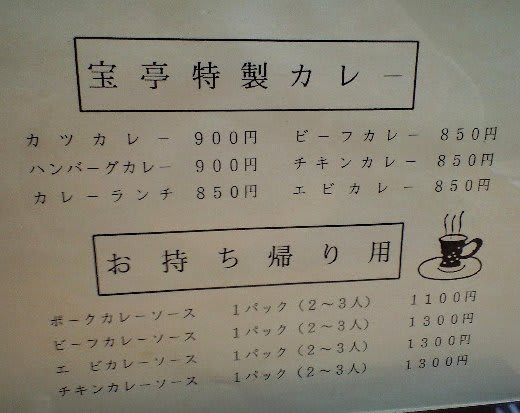 宝亭特製カレー
カツカレー 900円 ビーフカレー 850円
ハンバーグカレー 900円 チキンカレー 850円
カレーランチ 850円 エビカレー 850円
お持ち帰り用
ポークカレーソース 1パック(2～3人) 1100円
ビーフカレーソース 1パック(2～3人) 1300円
エビカレーソース 1パック(2～3人) 1300円
チキンカレーソース 1パック(2～3人) 1300円